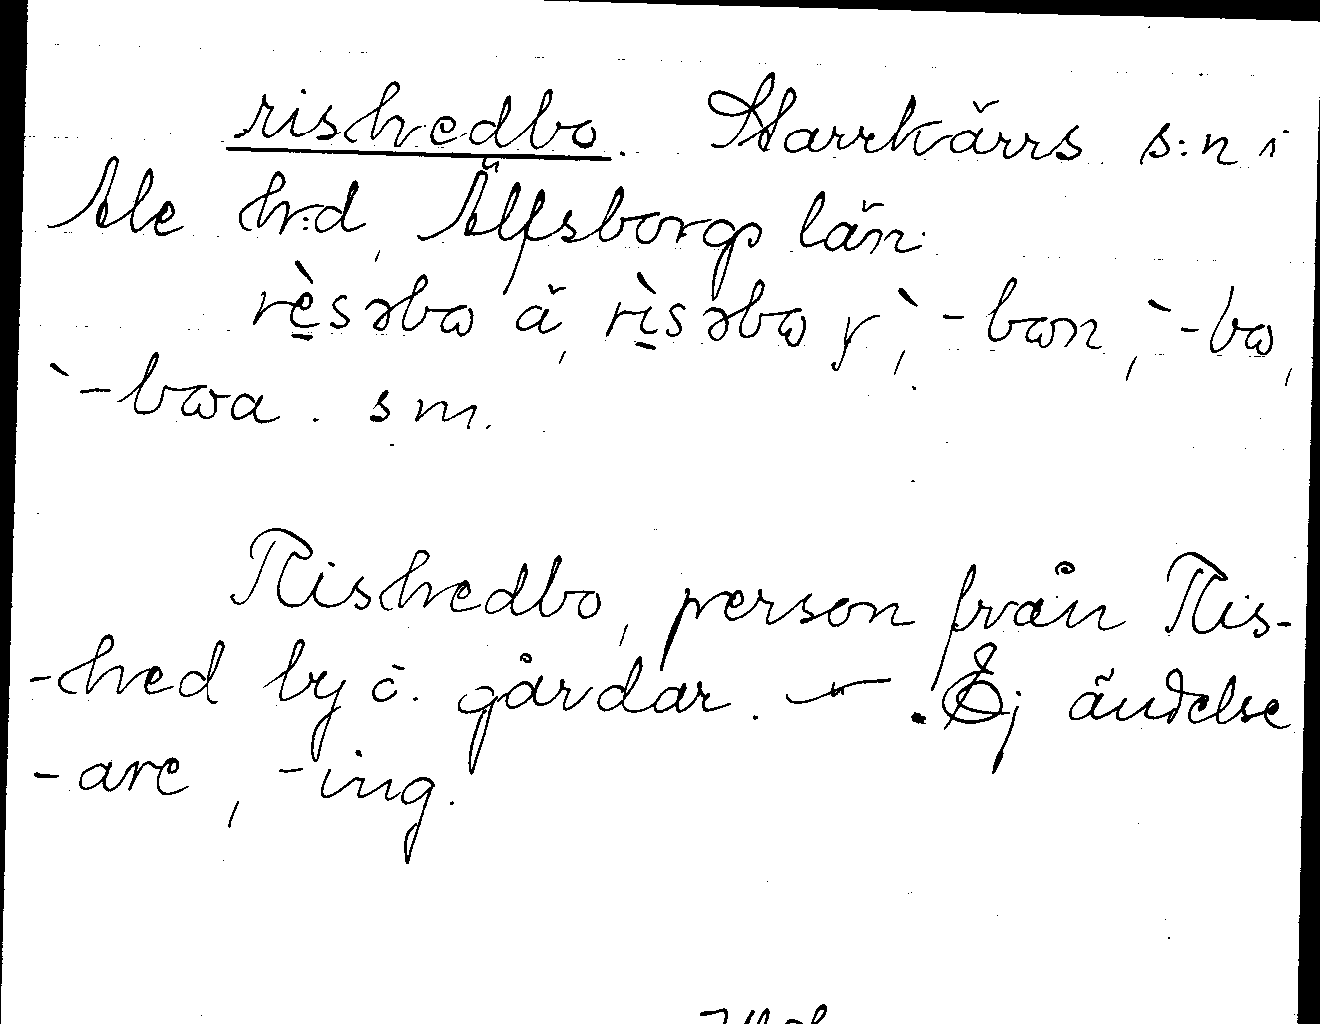 rishedbo. Starrkärrs s:n i
Ale h:d, Älfsborgs län.
rè̠səbɷ ä, rì̠səbɷ y, `-bɷn, `-bɷ,
`-bɷa. sm.
Rishedbo, person från Ris-
-hed by o. gårdar. — . Ej ändelse
-are, -ing.